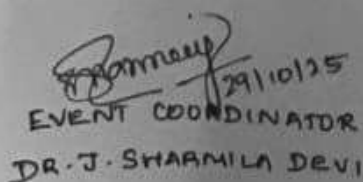 29/10/25
EVENT COORDINATOR
DR. J. SHARMILA DEVI